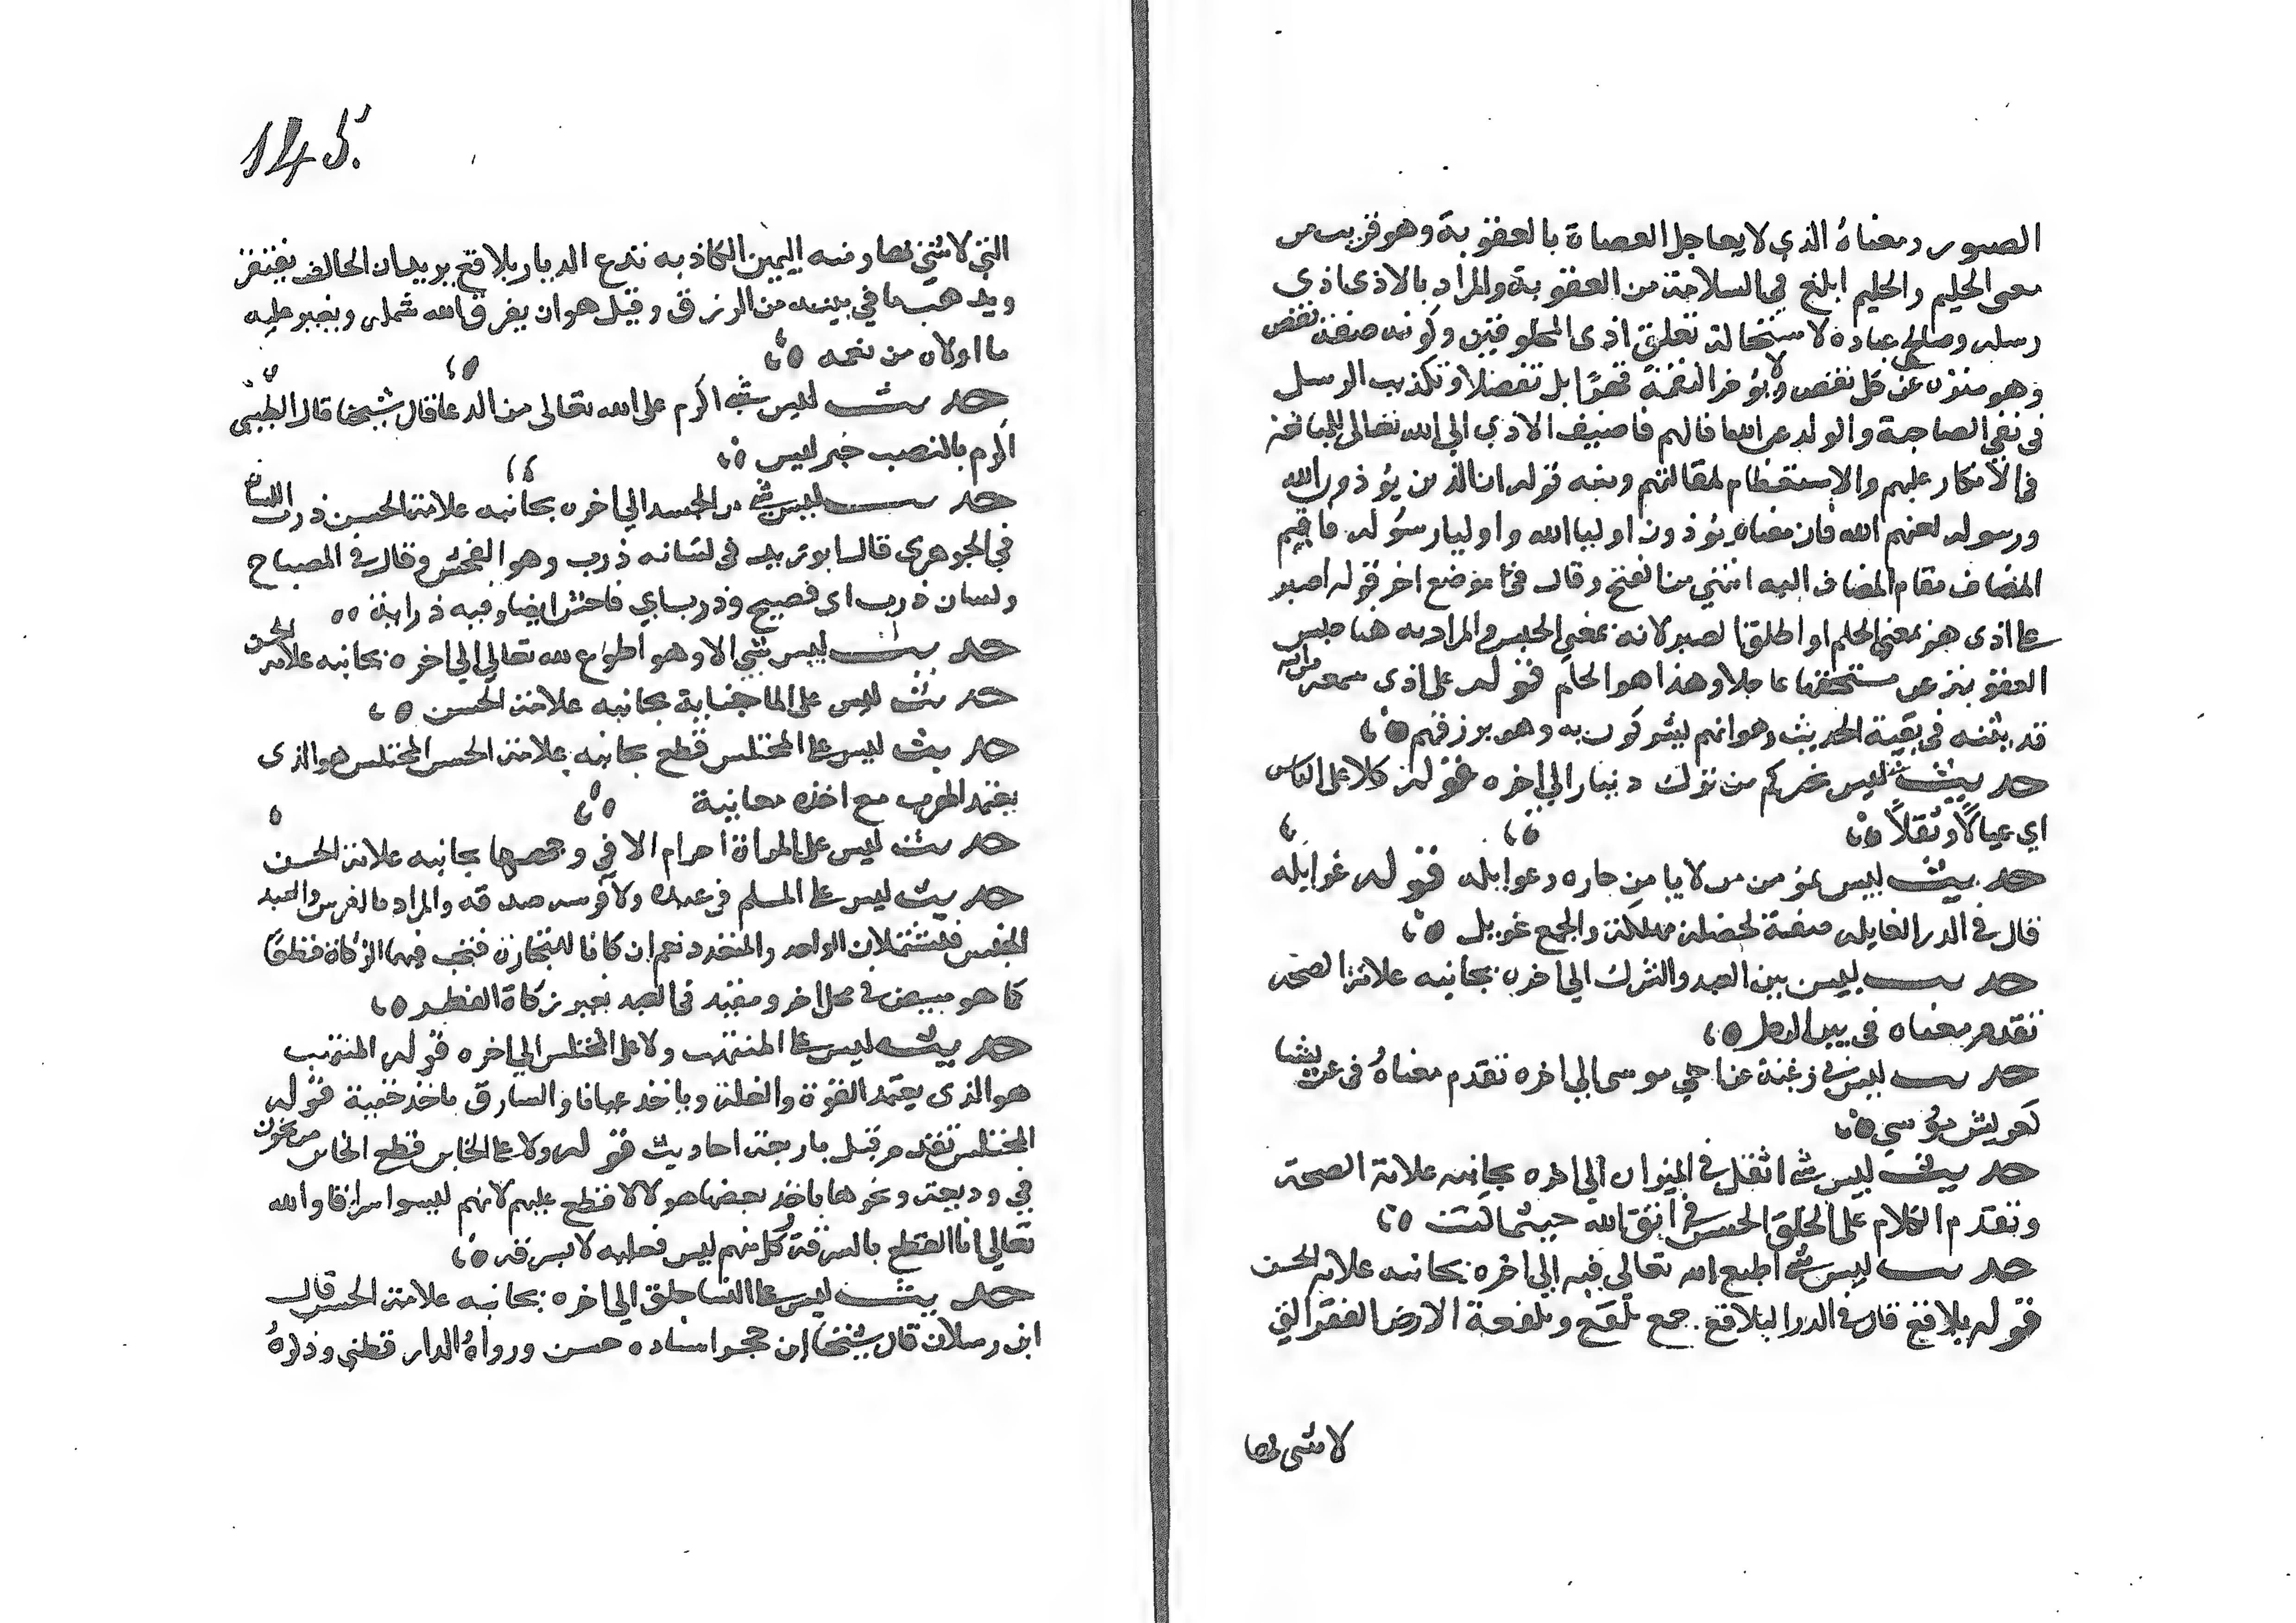 الصبور ومعناه الذي لا يعاجل العصاة بالعقوبة وهو قريب من
معنى الحليم والحليم ابلغ في السلامة من العقوبة والمراد بالاذى اذى
رسله وصالحي عباده لاستحالة تعلق اذى المخلوقين وكونه صفة نقص
وهو منزه عن كل نقص ولا يؤخر النقمة قهرًا بل تفضلا وتكذيب الرسل
في نفي الصاحبة والولد عن الله اذا لهم فاضيف الاذى الى الله تعالى للمبالغة
في الانكار عليهم والاستعظام لمقالتهم ومنه قوله ان الذين يؤذون الله
ورسوله لعنهم الله فان معناه يؤذون اوليا الله واوليا رسوله فاقيم
المضاف مقام المضاف اليه انتهى من الفتح وقال في موضع اخر قوله اصبر
على اذى هو بمعنى الحلم او اطلق الصبر لانه بمعنى الحبس والمراد به هنا حبس
العقوبة عن مستحقها عاجلا وهذا هو الحلم قوله على اذى سمعه من الله
قد بينه في بقية الحديث وهو انهم يشركون به وهو يرزقهم
حديث ليس بخيركم من ترك دنياه الى اخره قوله كلا على الناس
اي عيالًا وثقلًا
حديث ليس بمؤمن من لا يامن جاره غوايله قوله غوايله
قال في الدر الغايلة صفة لخصلة مهلكة والجمع غوايل
حديث ليس بين العبد والشرك الى اخره بجانبه علامة الصحة
تقدم معناه في بين الرجل
حديث ليس في رغبة عن اخي موسى الى اخره تقدم معناه في عريشا
كعريش موسي
حديث ليس شي اثقل في الميزان الى اخره بجانبه علامة الصحة
وتقدم الكلام على الخلق الحسن في اتق الله حيثما كنت
حديث ليس شي اطيع الله تعالى فيه الى اخره بجانبه علامة الحسن
قوله بلاقع قال في الدر البلاقع جمع بلقع وبلقعة الارض القفر التي
لا شي بها
145
التي لا شي بها ومنه اليمين الكاذبة تدع الديار بلاقع يريد ان الحالف يفتقر
ويذهب ما في بيته من الرزق وقيل هو ان يفرق الله شمله ويغير عليه
ما اولاه من نعمه
حديث ليس شي اكرم على الله تعالى من الدعا قال شيخنا قال الطيبي
اكرم بالنصب خبر ليس
حديث ليس شي من الجسد الى اخره بجانبه علامة الحسن ذرب اللسان
في الجوهري قال ابو زيد في لسانه ذرب وهو الفحش وقال في المصباح
ولسان ذرب اي فصيح وذرب اي فاحش ايضا وفيه ذرابة
حديث ليس شي الا وهو اطوع لله تعالى الى اخره بجانبه علامة الحسن
حديث ليس على الما جنابة بجانبه علامة الحسن
حديث ليس على المختلس قطع بجانبه علامة الحسن المختلس هو الذي
يعتمد الهرب مع اخذه معاينة
حديث ليس على المراة احرام الا في وجهها بجانبه علامة الحسن
حديث ليس على المسلم في عبده ولا فرسه صدقة والمراد بالفرس والعبد
الجنس فيشتملان الواحد والمتعدد نعم ان كانا للتجارة فتجب فيهما الزكاة قطعًا
كما هو مبين في محل اخر ومقيد في العبد بغير زكاة الفطر
حديث ليس على المنتهب ولا على المختلس الى اخره قوله المنتهب
هو الذي يعتمد القوة والغلبة وياخذ عيانا والسارق ياخذ خفية قوله
المختلس تقدم قبل باربعة احاديث قوله ولا على الخاين قطع الخاين من يخون
في وديعة ونحوها ياخذ بعضها هولا لا قطع عليهم لانهم ليسوا سراقا والله
تعالى اناط القطع بالسرقة وكل منهم ليس فعليه لا بسرقة
حديث ليس على النسا حلق الى اخره بجانبه علامة الحسن قال
ابن رسلان قال شيخنا ابن حجر اسناده حسن ورواه الدار قطني وذكره